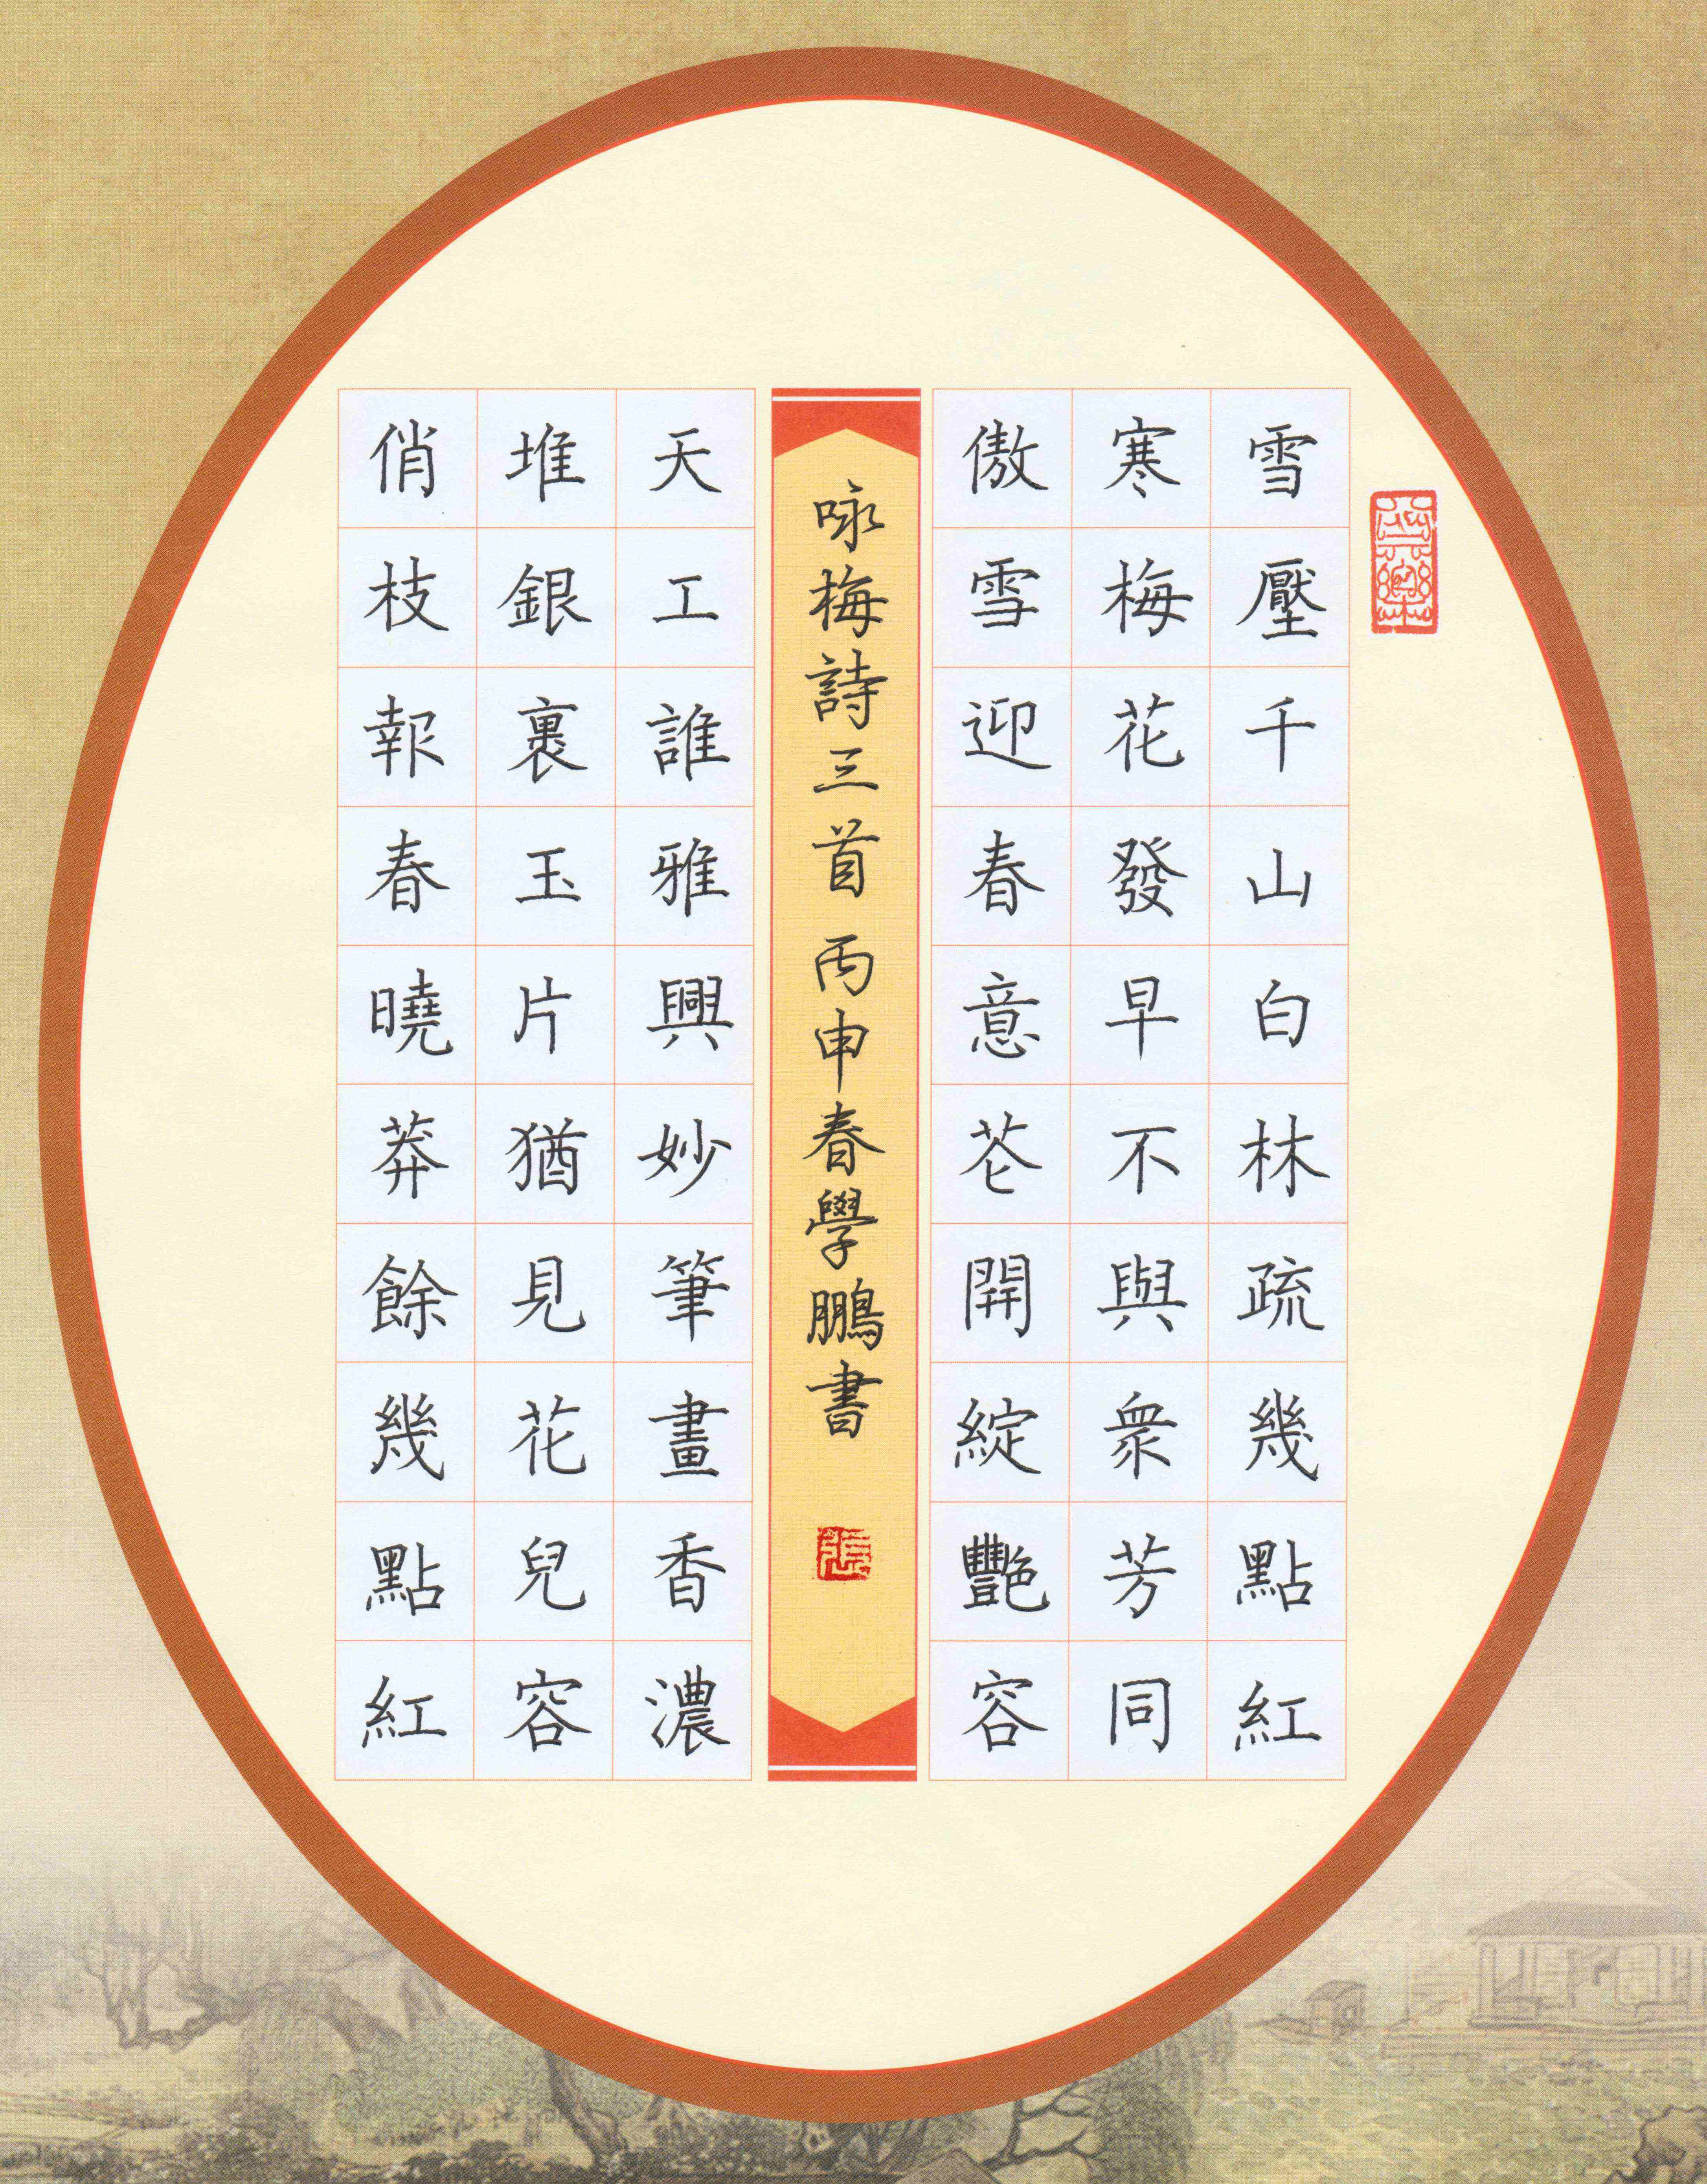 雪壓千山白林疏幾點紅
寒梅花發早不與衆芳同
傲雪迎春意芲開綻艷容
咏梅詩三首 丙申春學鵬書
張
天工誰雅興妙筆畫香濃
堆銀裹玉片猶見花兒容
俏枝報春曉莽餘幾點紅